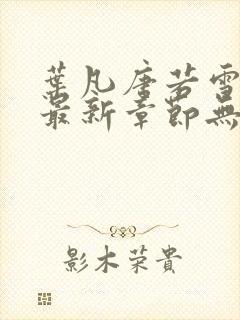 葉凡唐若雪
最新章節無
影木荣貴